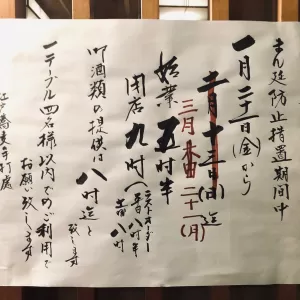 まん延防止措置期間中
一月二十一日(金)から
二月十三日(日)迄
三月
二十一(月)
始業 五時半
閉店 九時
ラストオーダー
八時半
土日 八時
御酒類の提供は 八時迄と
致します
一テーブル四名様以内でのご利用で
お願い致します
江戸蕎麦手打處